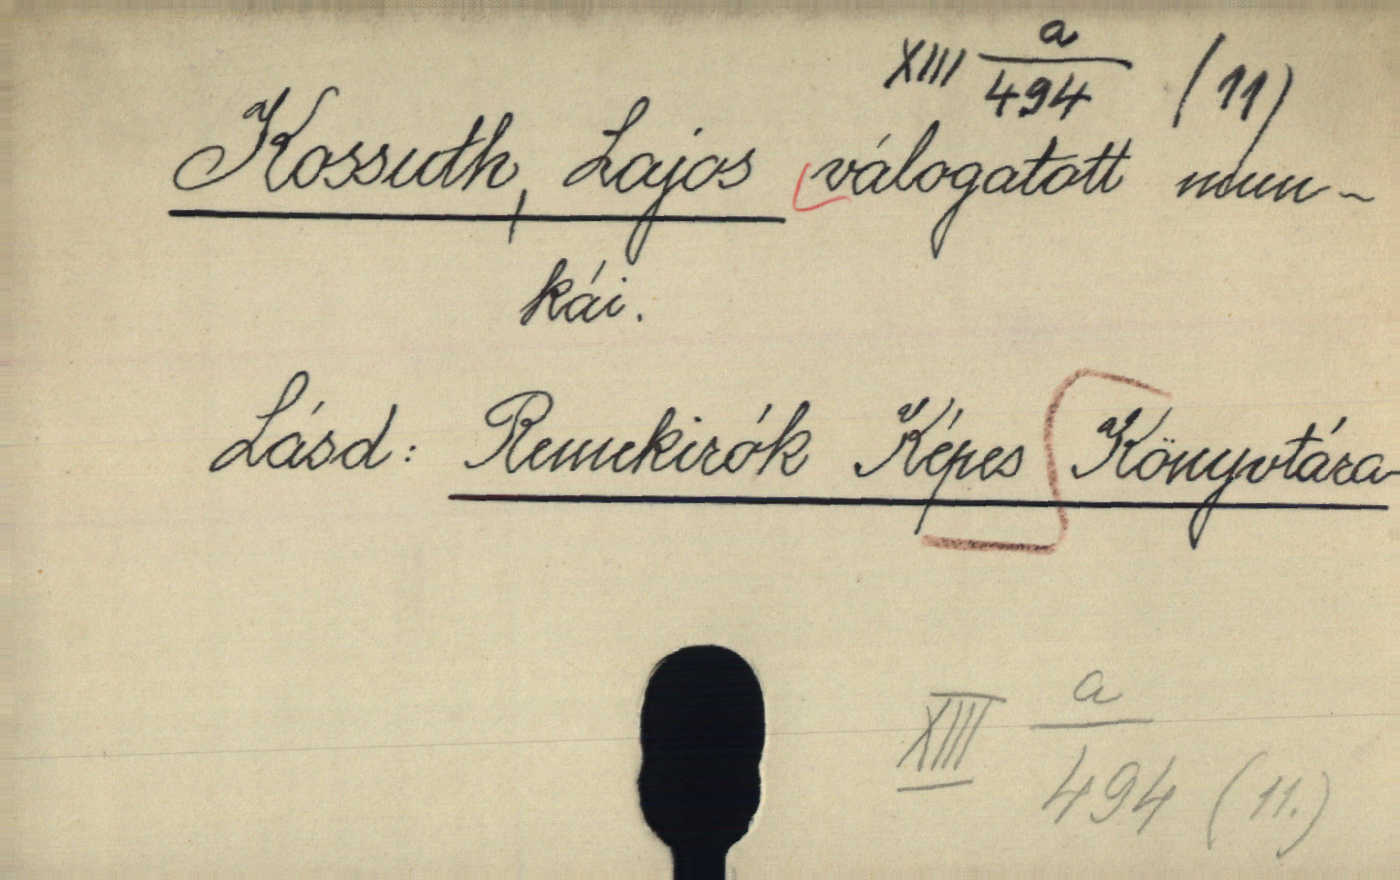 XIII a/494 (11)
Kossuth, Lajos válogatott mun-
kái.
Lásd: Remekirók Képes Könyvtára
XIII a/494 (11.)